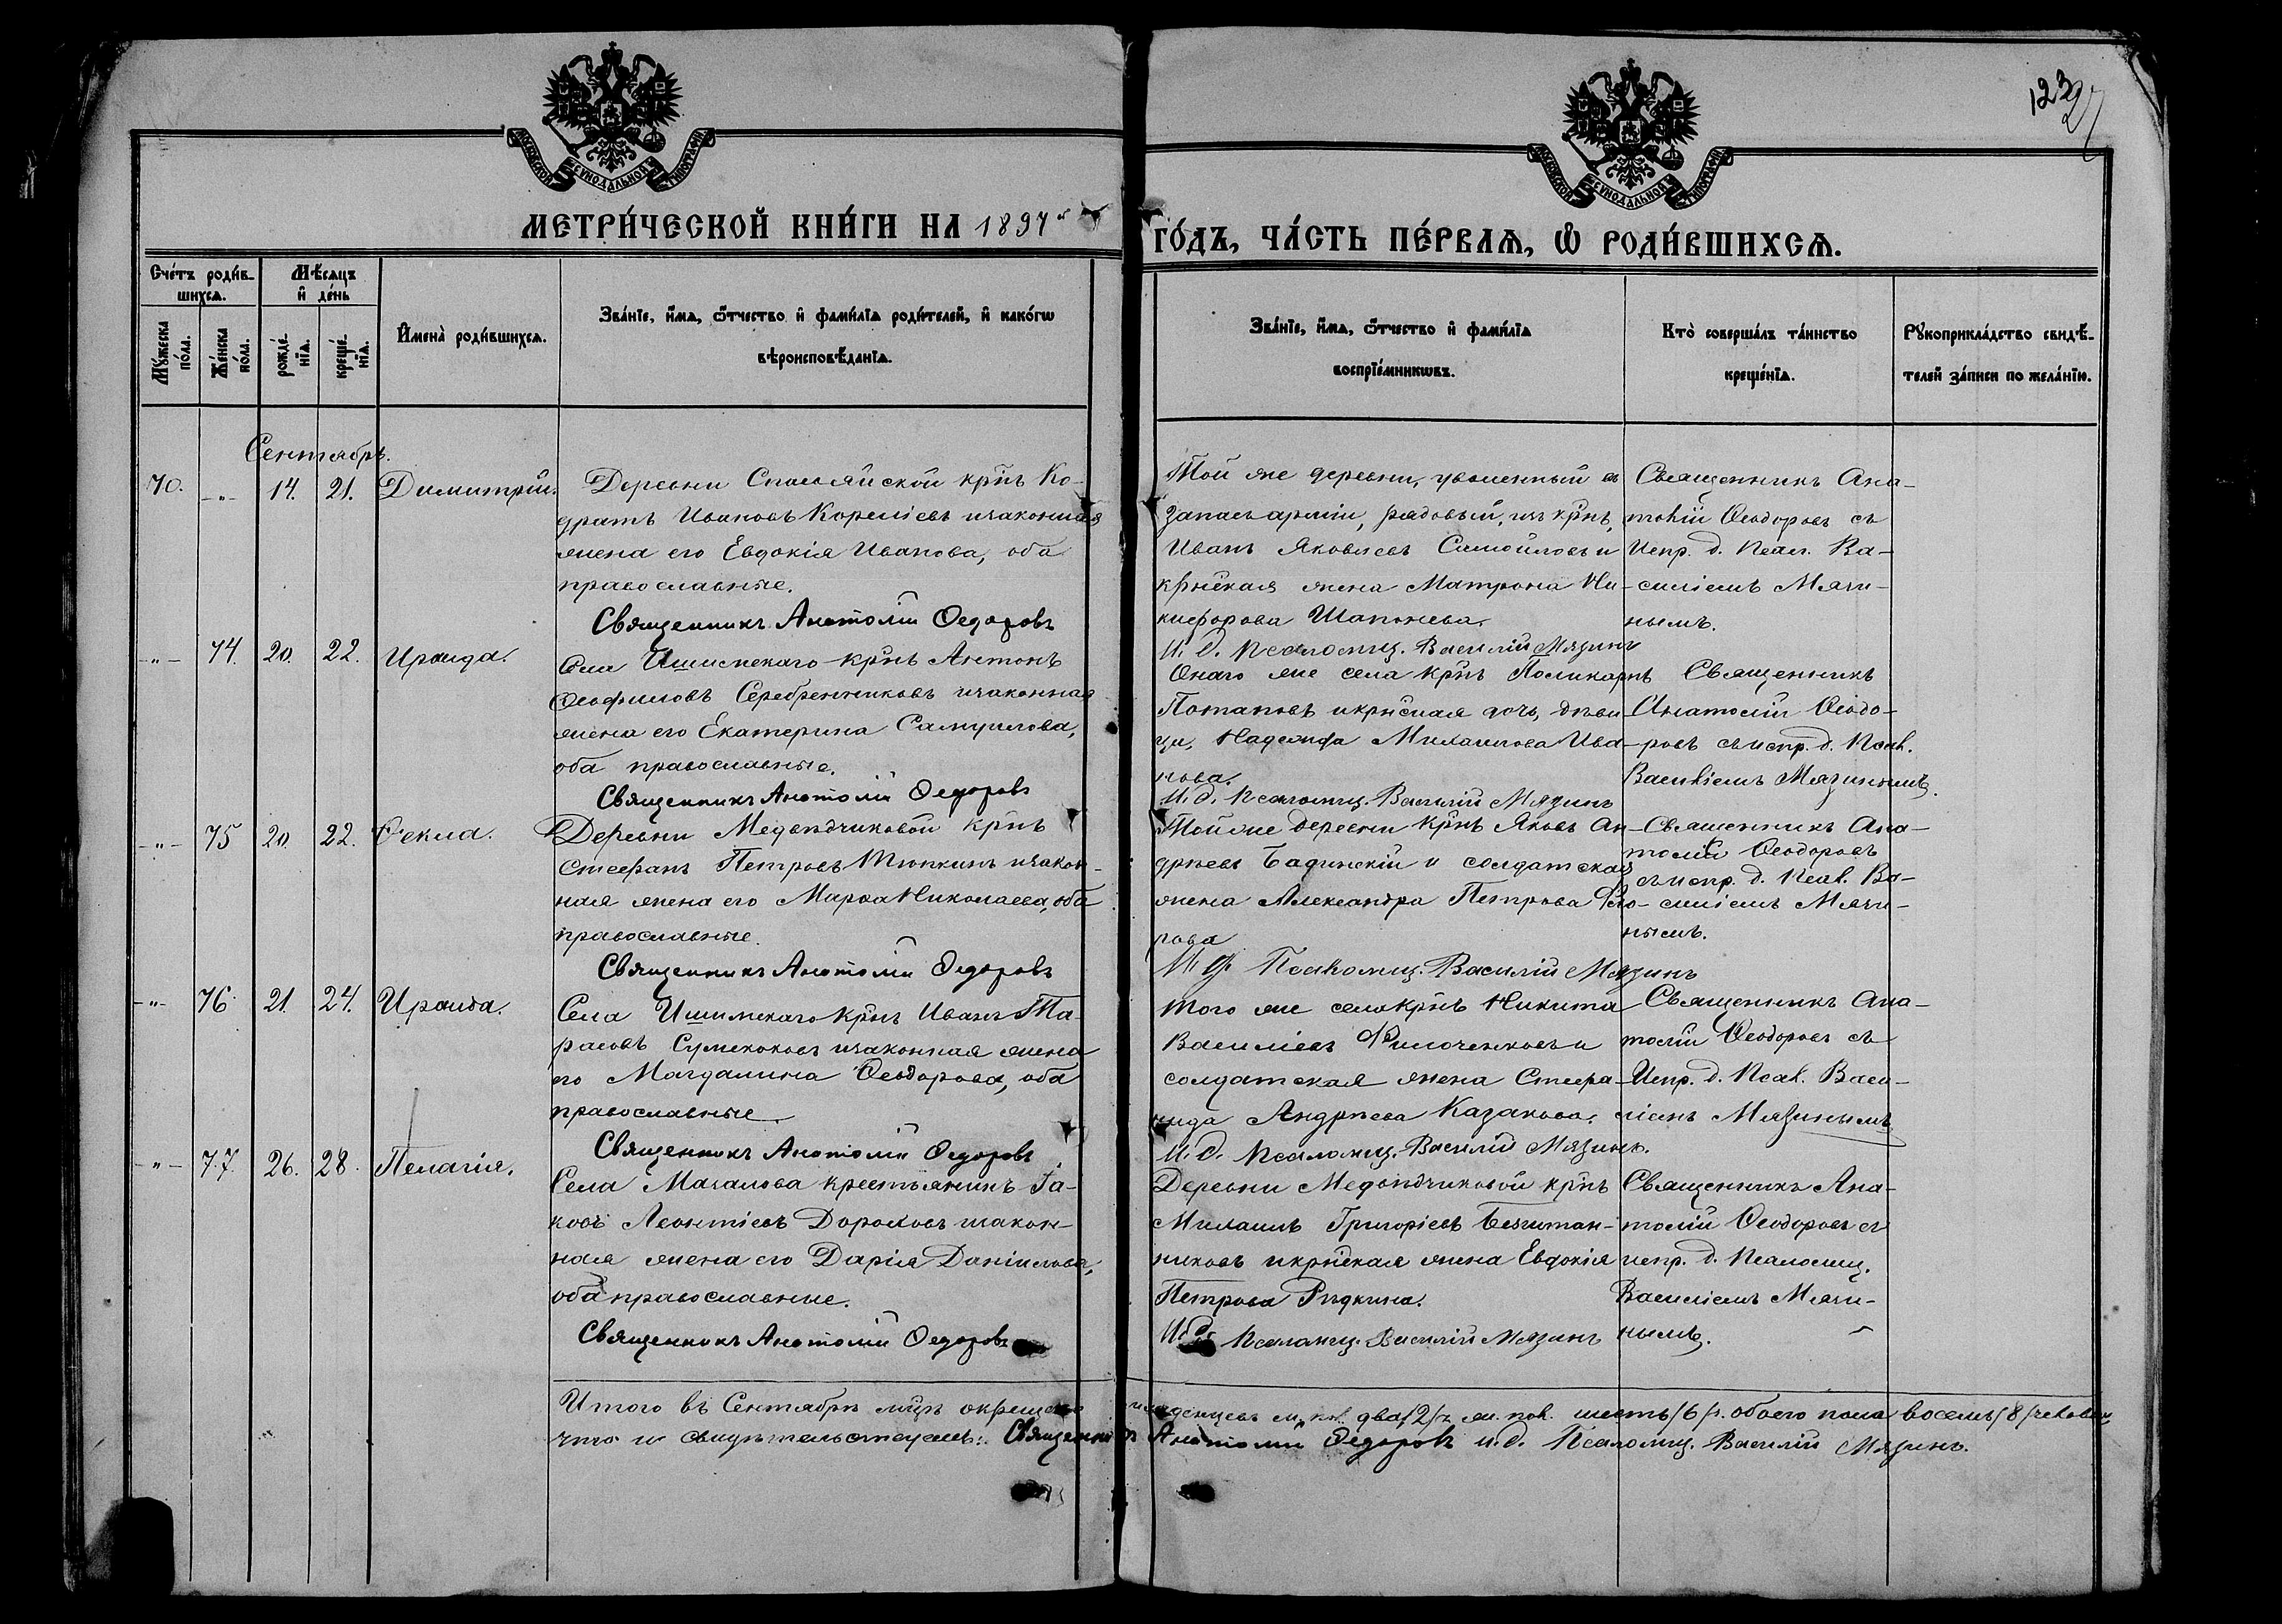 1239
МОСКОВСКОЙ СѴНОДАЛЬНОЙ ТИПОГРАФІИ
МОСКОВСКОЙ СѴНОДАЛЬНОЙ ТИПОГРАФІИ
МЕТРИ́ЧЕСКОЙ КНИ́ГИ НА 1897 й
ГО́ДЪ, ЧА́СТЬ ПЕ́РВАѦ, Ѽ РОДИ́ВШИХСѦ.
Сче́тъ роди́в-
шихсѧ.
Мꙋ́жеска по́ла.
Же́нска по́ла.
Мѣ́сѧцъ
и҆ де́нь
рожде́нїѧ.
креще́нїѧ.
И҆мена̀ роди́вшихсѧ.
Зва́нїе, и҆́мѧ, ѻ҆́тчество и҆ фами́лїа роди́телей, и҆ како́гѡ
вѣроисповѣ́данїѧ.
Зва́нїе, и҆́мѧ, ѻ҆́тчество и҆ фами́лїа
воспрїе́мникѡвъ.
Кто̀ соверша́лъ та́инство
креще́нїѧ.
Рꙋкоприкла́дство свидѣ́-
телей за́писи по жела́нїю.
Сентябрь.
70. -"- 14. 21. Димитрій.
Деревни Спасляйской крн̃ъ Ко-
дратъ Ивановъ Корнліевъ изаконная
жена его Евдокія Иванова, оба
православные.
Священникъ Анатолій Ѳедоровъ
Той же деревни, уволенный въ
запасъ арміи, рядовый, изъ крн̃ъ,
Иванъ Яковлевъ Самойловъ и
крн̃ская жена Матрона Ни-
кифорова Шапонева.
И. д. Псаломщ. Василій Мязинъ
Священникъ Ана-
толій Ѳеодоровъ съ
Испр. д. Псал. Ва-
силіемъ Мязи-
нымъ.
-"- 74. 20. 22. Ираида.
Села Ишимскаго крн̃ъ Антонъ
Ѳеофиловъ Серебренниковъ изаконная
жена его Екатерина Самуилова,
оба православные.
Священникъ Анатолій Ѳедоровъ
Онаго же села крн̃ъ Поликарпъ
Потаповъ икрн̃ская дочь, дѣви-
ца, Надежда Михаилова Ива-
нова.
И. д. Псаломщ. Василій Мязинъ
Священникъ
Анатолій Ѳеодо-
ровъ съ испр. д. Псал.
Василіемъ Мязинымъ.
-"- 75 20. 22. Ѳекла.
Деревни Медвѣдчиковой крн̃ъ
Стефанъ Петровъ Тюпкинъ изакон-
ная жена его Марѳа Николаева, оба
православные.
Священникъ Анатолій Ѳедоровъ
Той же деревни крн̃ъ Яковъ Ан-
дрѣевъ Бадинскій и солдатская
жена Александра Петрова Ѳео-
рова
И. д. Псаломщ. Василій Мязинъ
Священникъ Ана-
толій Ѳеодоровъ
съ испр. д. Псал. Ва-
силіемъ Мязи-
нымъ.
-"- 76. 21. 24. Ираида.
Села Ишимскаго крн̃ъ Иванъ Та-
расовъ изаконная жена
его Магдалина Ѳеодорова, оба
православные.
Священникъ Анатолій Ѳедоровъ
Того же села крн̃ъ Никита
Василіевъ Филоченковъ и
солдатская жена Стефа-
нида Андрѣева Казакова.
И. д. Псаломщ. Василій Мязинъ.
Священникъ Ана-
толій Ѳеодоровъ съ
Испр. д. Псал. Васи-
ліемъ Мязинымъ
-"- 77. 26. 28. Пелагія.
Села Мачалова крестьянинъ Іа-
ковъ Леонтіевъ Дороховъ изакон-
ная жена его Дарія Даніилова,
оба православные.
Священникъ Анатолій Ѳедоровъ
Деревни Медвѣдчиковой крн̃ъ
Михаилъ Григоріевъ
никовъ икрн̃ская жена Евдокія
Петрова Рѣдкина.
И. д. Псаломщ. Василій Мязинъ
Священникъ Ана-
толій Ѳеодоровъ съ
испр. д. Псаломщ.
Василіемъ Мязи-
нымъ.
Итого въ Сентябрѣ мц̃ѣ окрещено младенцевъ м. пол. два /2/, ж. пол. шесть /6/. обоего пола восемь /8/ человѣкъ
что и свидѣтельствуемъ: Священникъ Анатолій Ѳедоровъ И. д. Псаломщ. Василій Мязинъ.